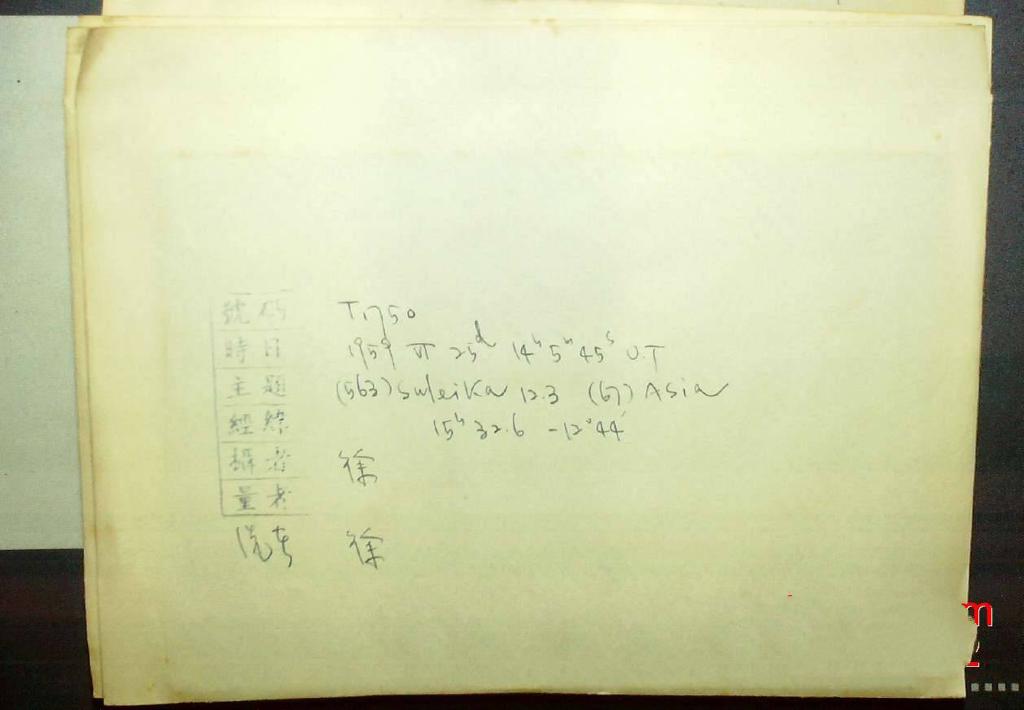 號碼 T1750
時日 1959 VI 25d 14h 5m 45s U.T
主題 (563) Suleika 12.3 (67) Asia
經緯 15h 32.6 -12°44′
攝者 徐
量者
洗者 徐
m